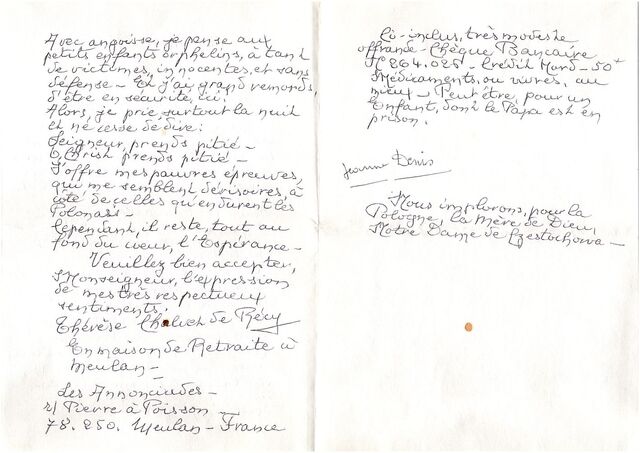 Avec angoisse, je pense aux
petits enfants orphelins, à tant
de victimes, innocentes, et sans
défense - Et j'ai grand remords,
d'être en sécurité, ici.
Alors, je prie surtout la nuit
et ne cesse de dire:
Seigneur, prends pitié -
O Christ, prends pitié -
J'offre mes pauvres épreuves,
qui me semblent dérisoires, à
côté de celles qu'endurent les
Polonais -
Cependant, il reste, tout au
fond du cœur, l'Espérance -
Veuillez bien accepter,
Monseigneur, l'expression
de mes très respectueux
sentiments.
Thérèse de Récy
En maison de Retraite à
Meulan -
Les Annonciades -
r/ Pierre à Poisson
78.250. Meulan - France
Ci-inclus, très modeste
offrande - Chèque Bancaire
864.025 - Crédit Nord - 50
Médicaments, ou vivres, au
mieux - Peut être, pour un
Enfant, dont le Papa est en
prison.
Jeanne Denis
Nous implorons, pour la
Pologne, la Mère de Dieu,
Notre Dame de Czestochowa -